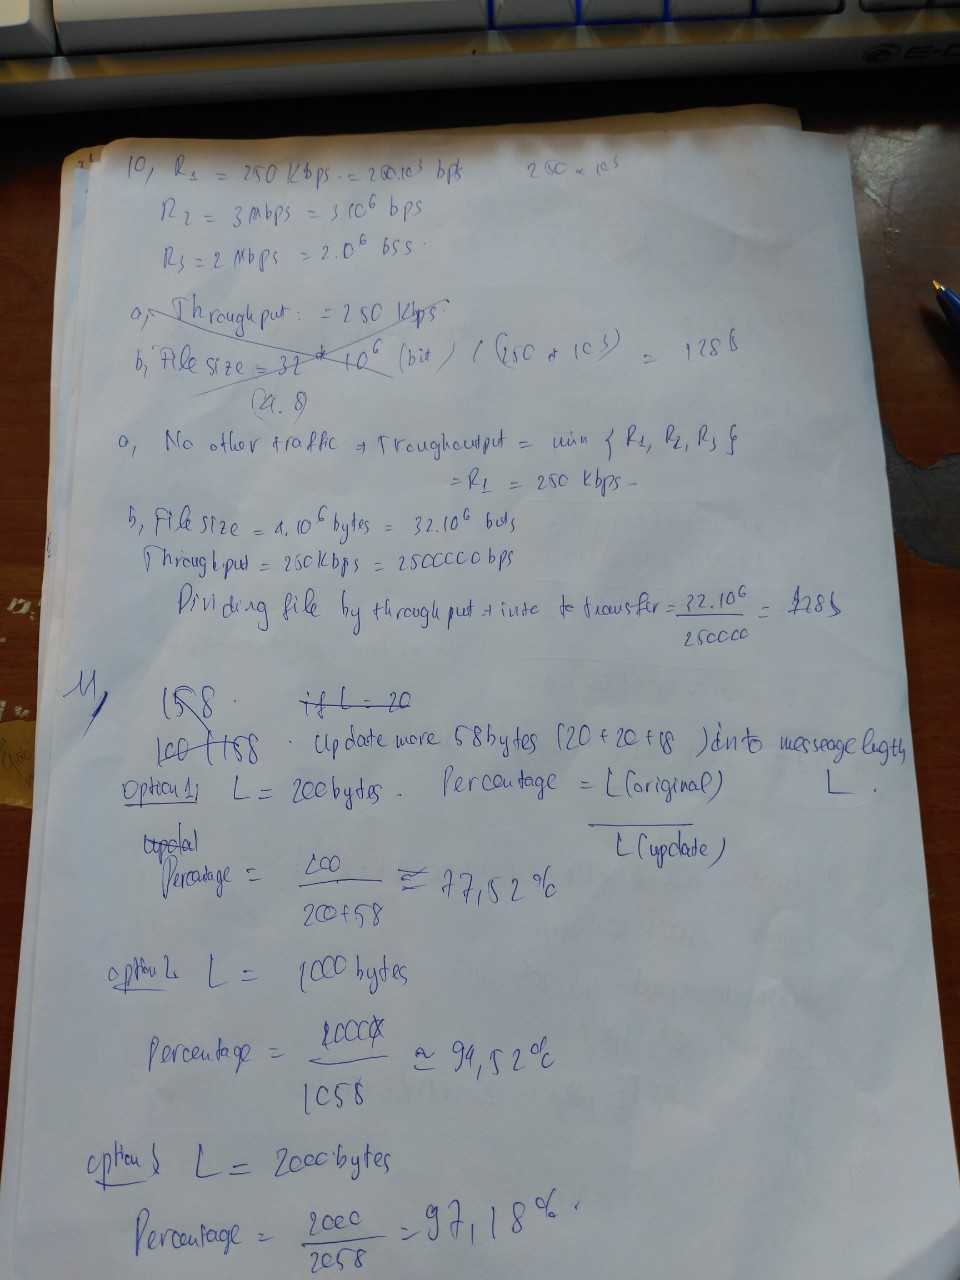 10, R1 = 250 Kbps. = 250.10³ bps 250 × 10³
R2 = 3 Mbps = 3.10⁶ bps
R3 = 2 Mbps = 2.0⁶ bss.
a, Throughput: = 250 Kbps.
b, File size = 32 * 10⁶ (bit) / (250 * 10³) = 128 s
(4. 8)
a, No other traffic → Troughoutput = min { R1, R2, R3 }
= R1 = 250 Kbps –
b, File size = 4.10⁶ bytes = 32.10⁶ bits
Throughput = 250 Kbps = 2500000 bps
Dividing file by throughput → to transfer = 32.10⁶ / 250000 = 128 s
11,
158. if L = 20
100 + 158. Update more 58 bytes (20 + 20 + 18) into message length
Option 1, L = 200 bytes. Percentage = L (original) L.
L (update)
Percentage = 200 / 200 + 58 ≈ 77,52 %
option 2. L = 1000 bytes
Percentage = 1000 / 1058 ≈ 94,52 %
option 3 L = 2000 bytes
Percentage = 2000 / 2058 = 97,18 %.